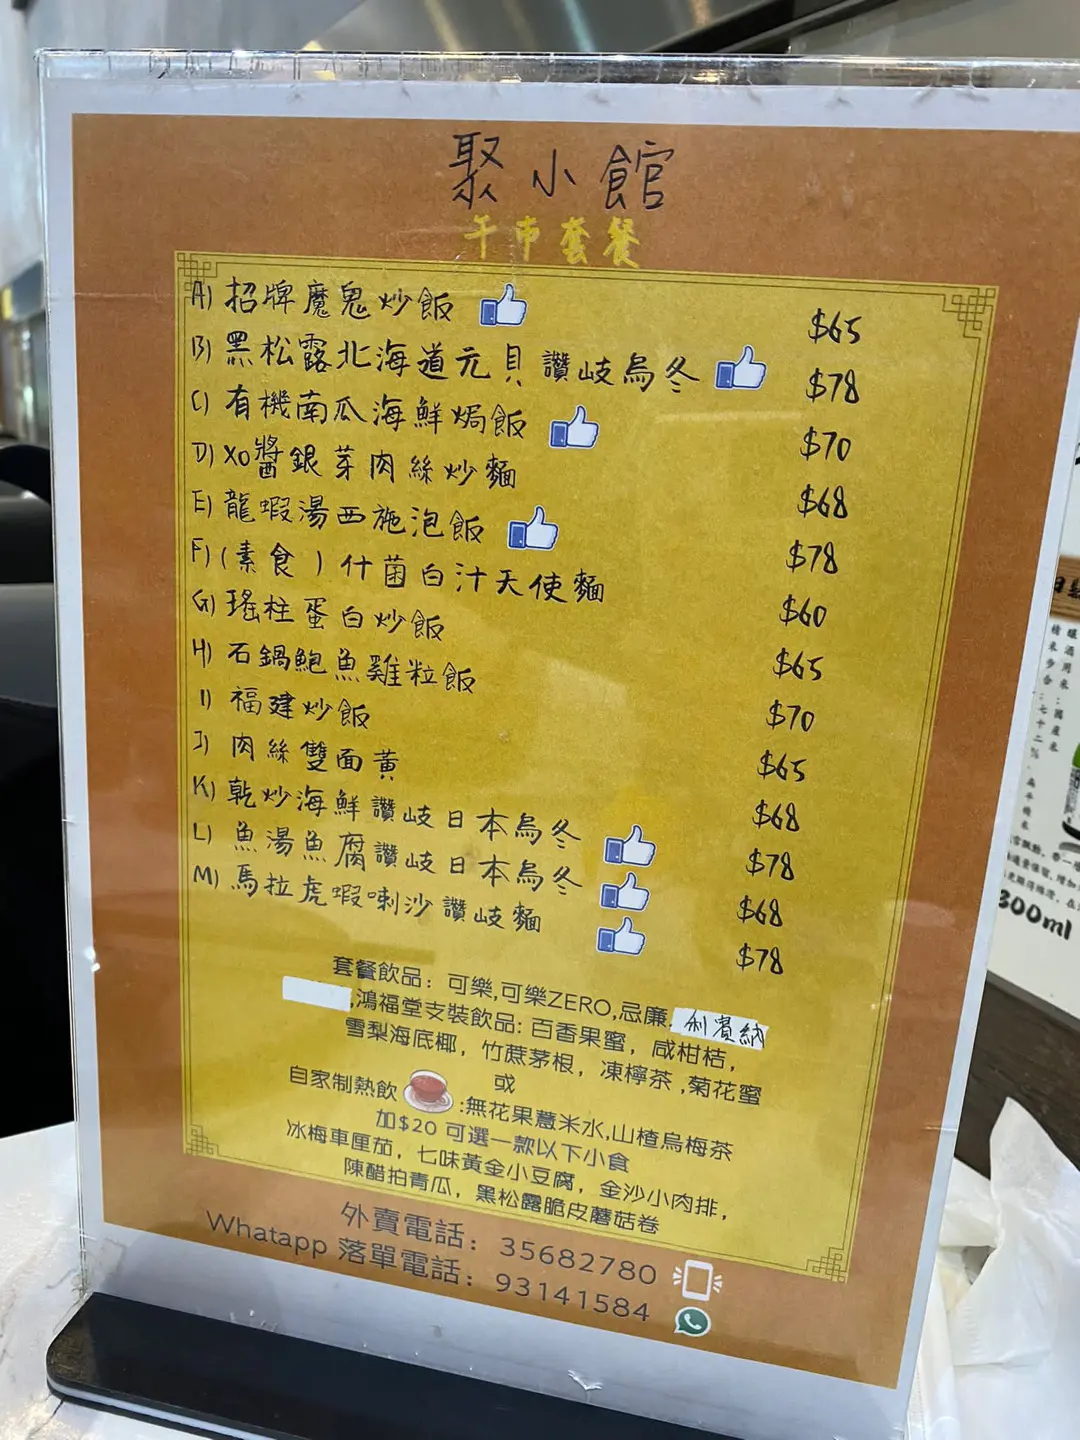 聚小館
午市套餐
A) 招牌魔鬼炒飯 $65
B) 黑松露北海道元貝讚岐烏冬 $78
C) 有機南瓜海鮮焗飯 $70
D) XO醬銀芽肉絲炒麵 $68
E) 龍蝦湯西施泡飯 $78
F) (素食) 什菌白汁天使麵 $60
G) 瑤柱蛋白炒飯 $65
H) 石鍋鮑魚雞粒飯 $70
I) 福建炒飯 $65
J) 肉絲雙面黃 $68
K) 乾炒海鮮讚岐日本烏冬 $78
L) 魚湯魚腐讚岐日本烏冬 $68
M) 馬拉虎蝦喇沙讚岐麵 $78
套餐飲品：可樂,可樂ZERO,忌廉,利賓納
,鴻福堂支裝飲品：百香果蜜，咸柑桔，
雪梨海底椰，竹蔗茅根，凍檸茶,菊花蜜
或
自家制熱飲:無花果薏米水,山楂烏梅茶
加$20 可選一款以下小食
冰梅車厘茄，七味黃金小豆腐，金沙小肉排，
陳醋拍青瓜，黑松露脆皮蘑菇卷
外賣電話：35682780
Whatapp 落單電話：93141584
300ml